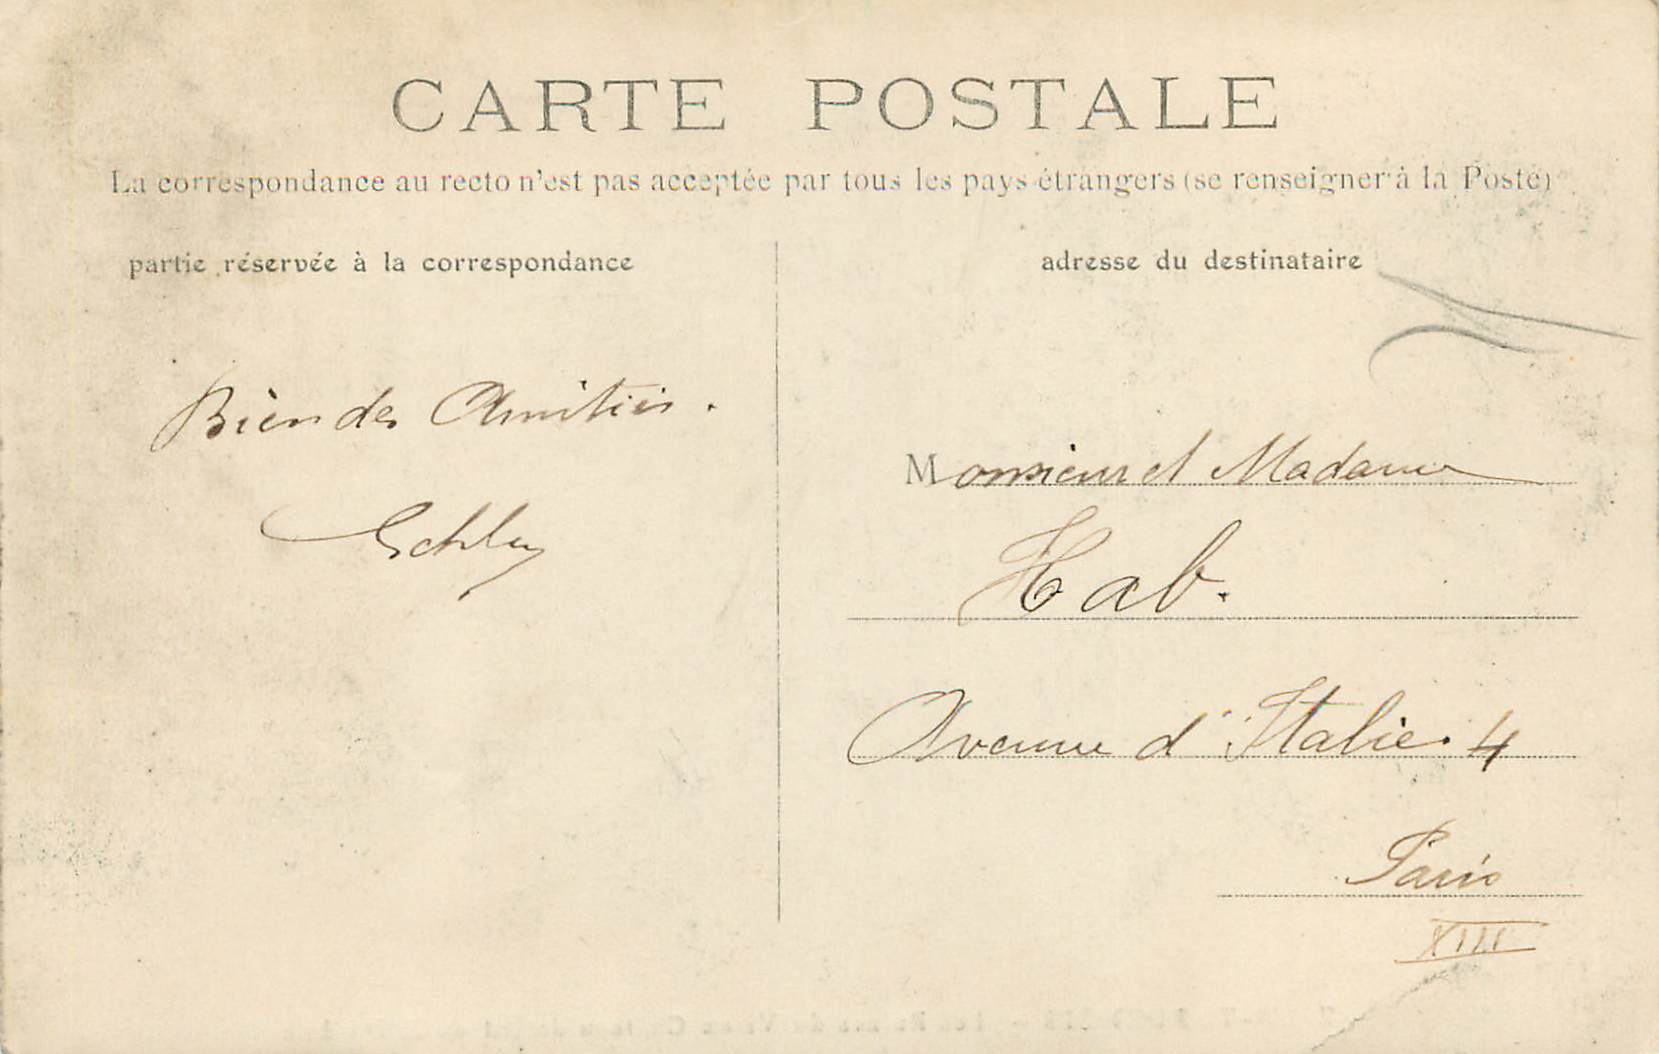 CARTE POSTALE
La correspondance au recto n'est pas acceptée par tous les pays étrangers (se renseigner à la Poste)
partie réservée à la correspondance
adresse du destinataire
Bien des Amitiés.
Monsieur et Madame
Hab.
Avenue d'Italie. 4
Paris
XIII